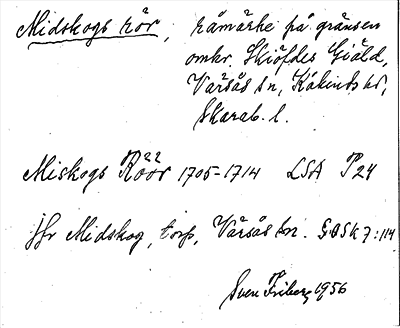 Midskogs rör, råmärke på gränsen
omkr. Skiöfdes Giäld,
Varsås sn, Kåkinds hd,
Skarab. l.
Miskogs Röör 1705-1714 LSA P24
22
jfr Midskog, torp, Varsås sn. SOSk 7:114
Sven Friberg 1956